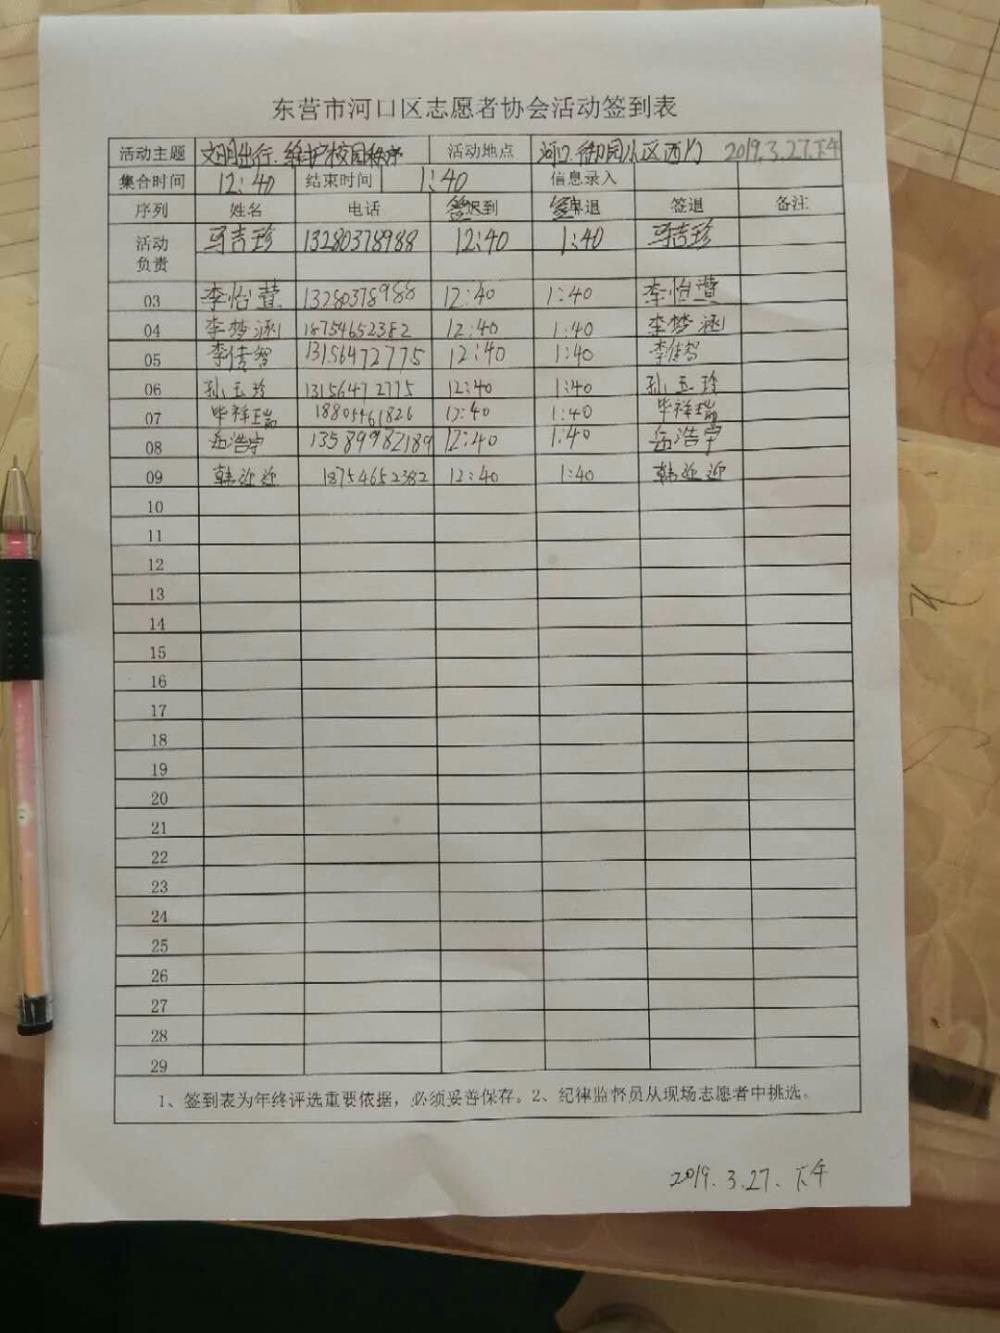 东营市河口区志愿者协会活动签到表
活动主题 文明出行.维护校园秩序 活动地点 河口.御园小区西门 2019.3.27.下午
集合时间 12:40 结束时间 1:40 信息录入
序列 姓名 电话 签到 签退 签退 备注
活动负责 马吉珍 13280378988 12:40 1:40 马吉珍
03 李怡萱 13280378988 12:40 1:40 李怡萱
04 李梦涵 18754652382 12:40 1:40 李梦涵
05 李传智 13156472775 12:40 1:40 李传智
06 孙玉珍 13156472775 12:40 1:40 孙玉珍
07 毕祥瑞 18805461826 12:40 1:40 毕祥瑞
08 岳浩宇 13589982189 12:40 1:40 岳浩宇
09 韩迎迎 18754652382 12:40 1:40 韩迎迎
10
11
12
13
14
15
16
17
18
19
20
21
22
23
24
25
26
27
28
29
1、签到表为年终评选重要依据，必须妥善保存。2、纪律监督员从现场志愿者中挑选。
2019.3.27.下午